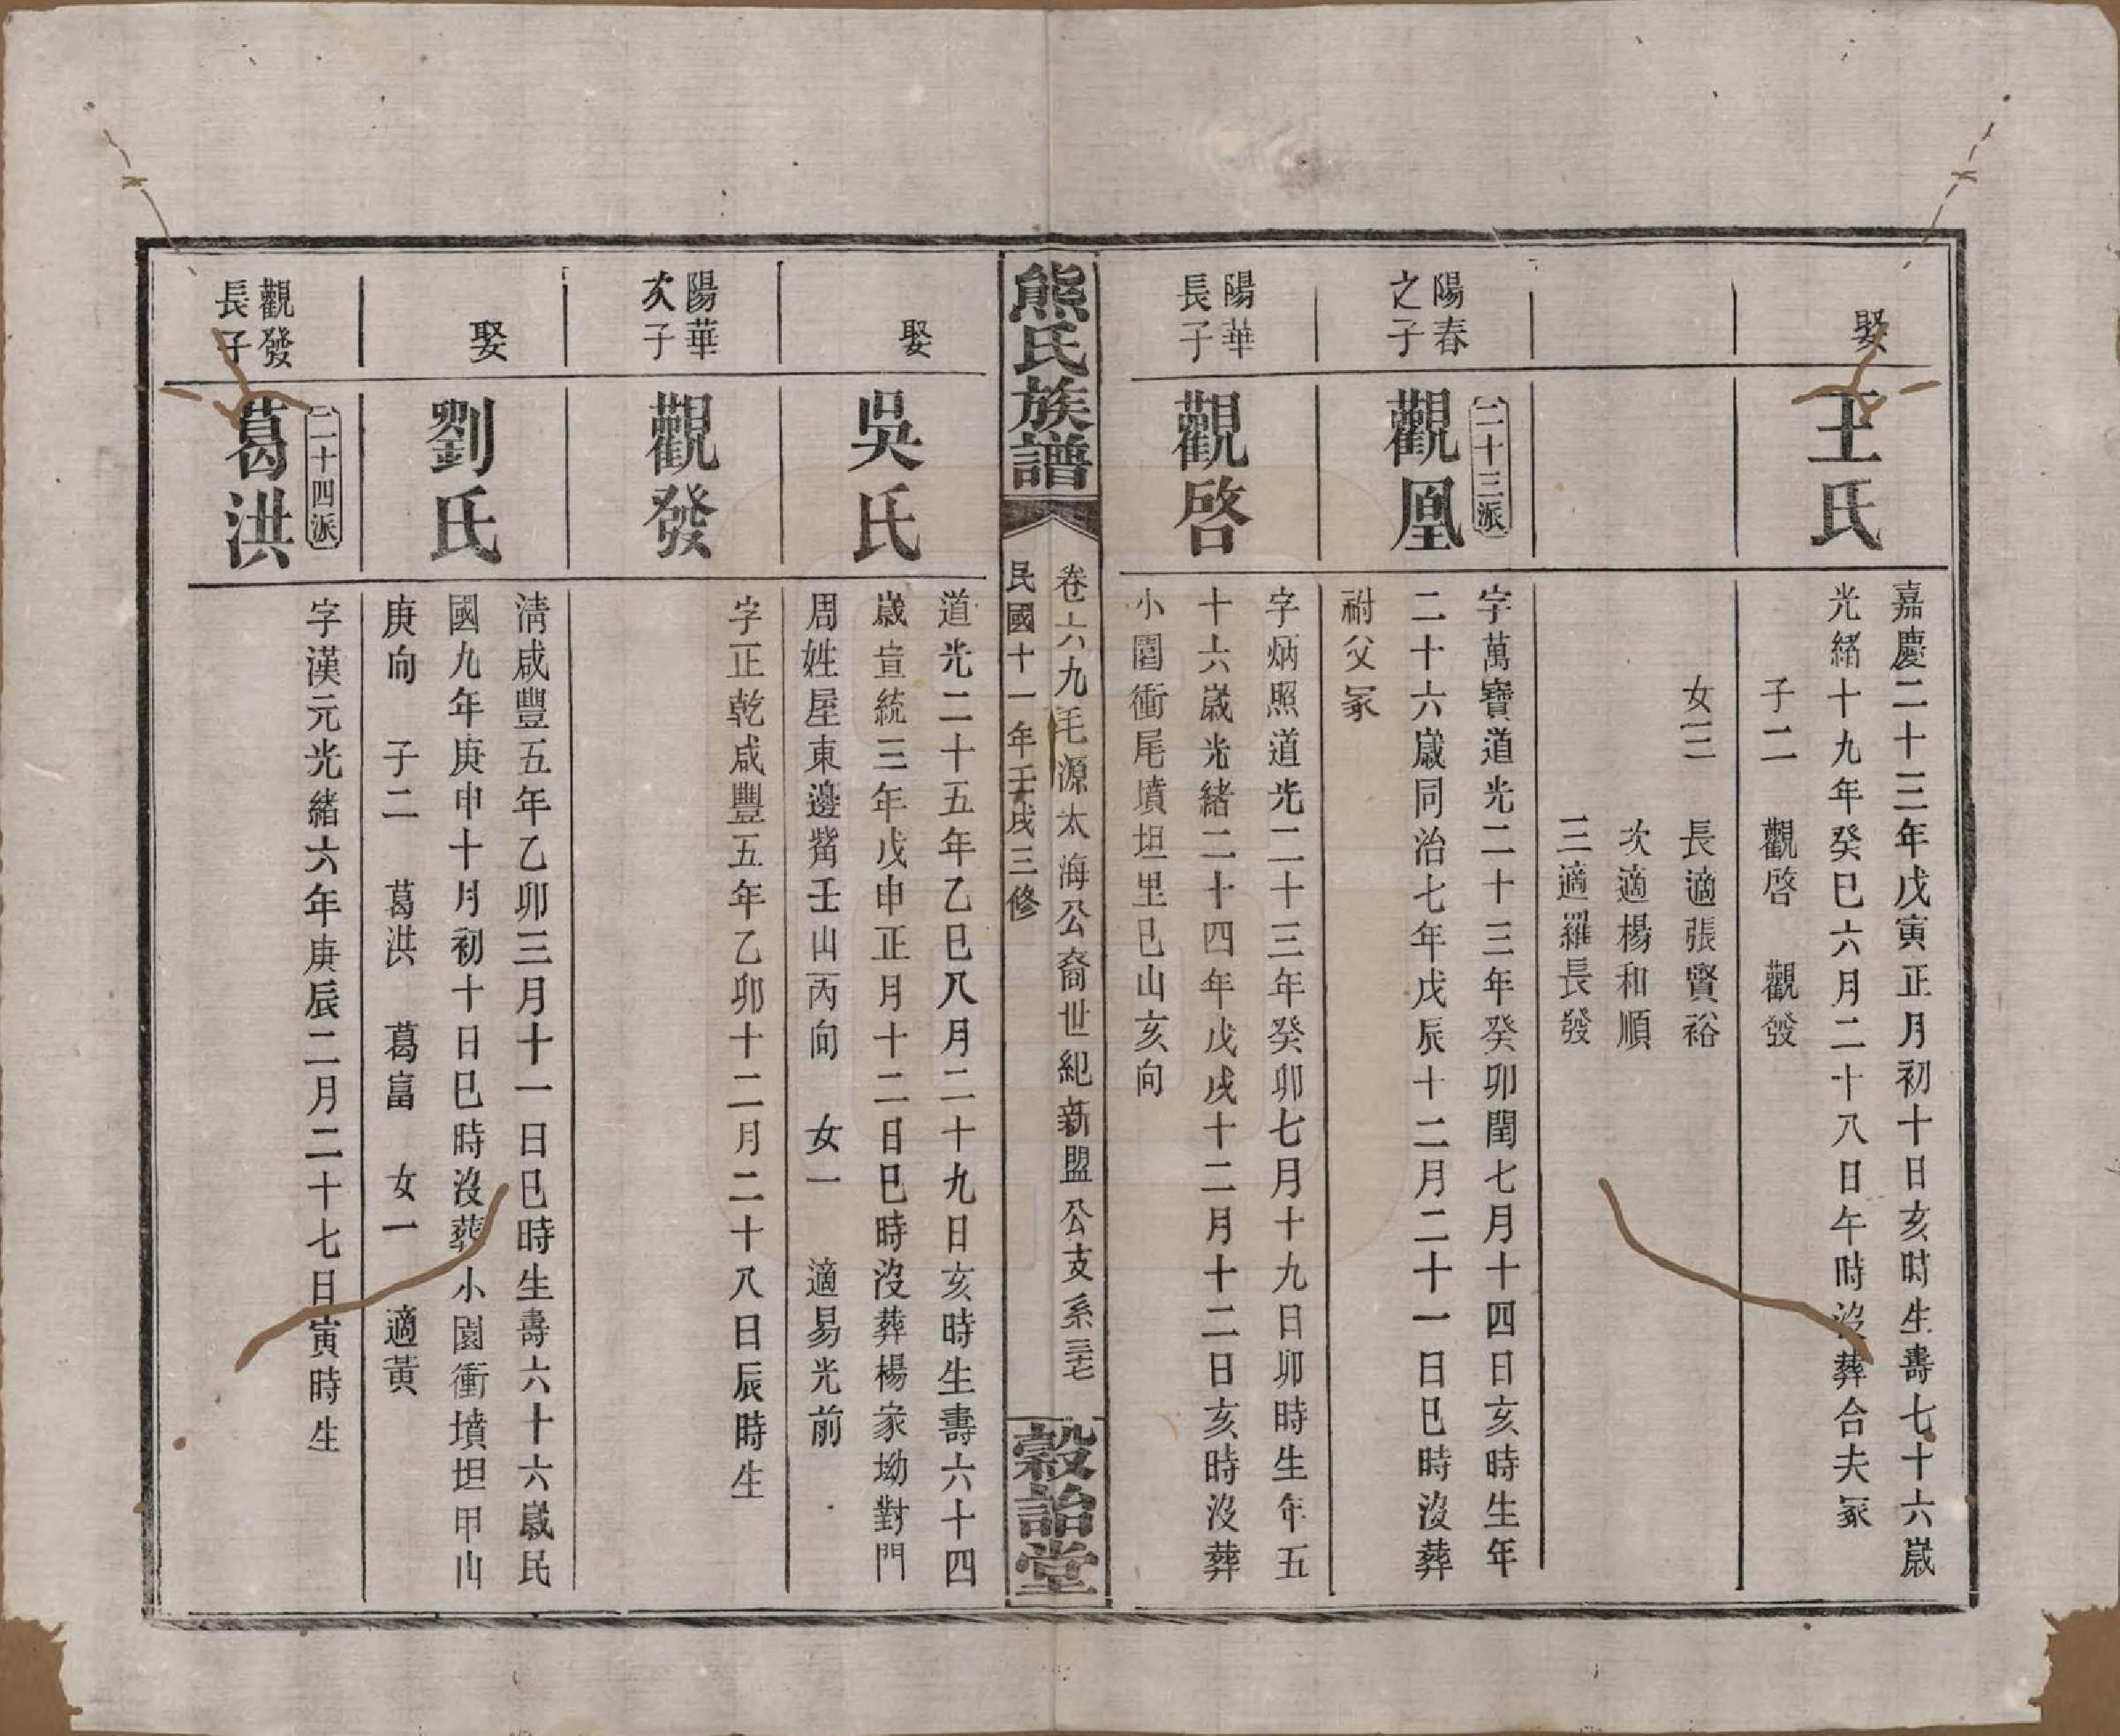 娶
王氏
嘉慶二十三年戊寅正月初十日亥時生壽七十六歲
光緒十九年癸巳六月二十八日午時沒葬合夫冢
子二　觀啓　觀發
女三　長適張賢裕
次適楊和順
三適羅長發
二十三派
陽春
之子
觀凰
字萬寶道光二十三年癸卯閏七月十四日亥時生年
二十六歲同治七年戊辰十二月二十一日巳時沒葬
祔父冢
陽華
長子
觀啓
字炳照道光二十三年癸卯七月十九日卯時生年五
十六歲光緒二十四年戊戌十二月十二日亥時沒葬
小園衝尾墳坦里巳山亥向
熊氏族譜
卷六九毛源太海公裔世紀新盟公支系三七
民國十一年壬戌三修
穀詒堂
娶
吳氏
道光二十五年乙巳八月二十九日亥時生壽六十四
歲宣統三年戊申正月十二日巳時沒葬楊家坳對門
周姓屋東邊觜壬山丙向　女一　適易光前
陽華
次子
觀發
字正乾咸豐五年乙卯十二月二十八日辰時生
娶
劉氏
清咸豐五年乙卯三月十一日巳時生壽六十六歲民
國九年庚申十月初十日巳時沒葬小園衝墳坦甲山
庚向　子二　葛洪　葛富　女一　適黃
二十四派
觀發
長子
葛洪
字漢元光緒六年庚辰二月二十七日寅時生